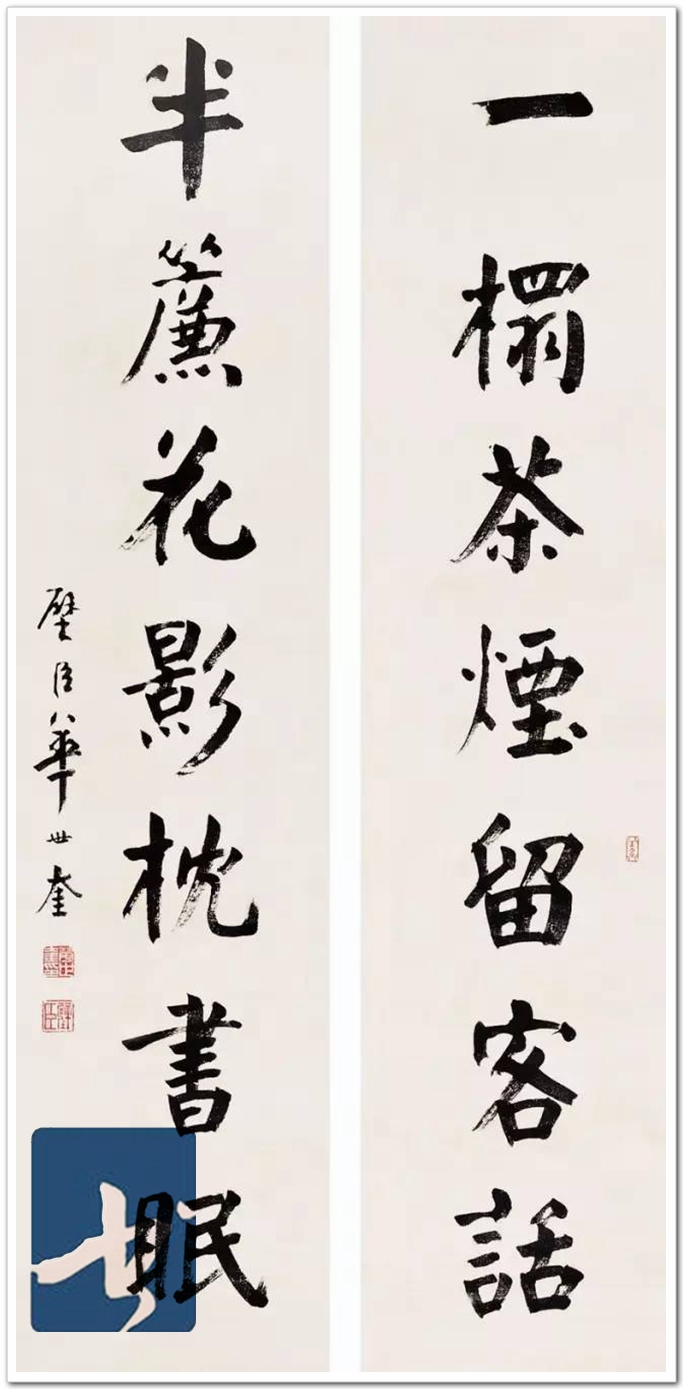 一榻茶煙留客話
半簾花影枕書眠
壁臣華世奎